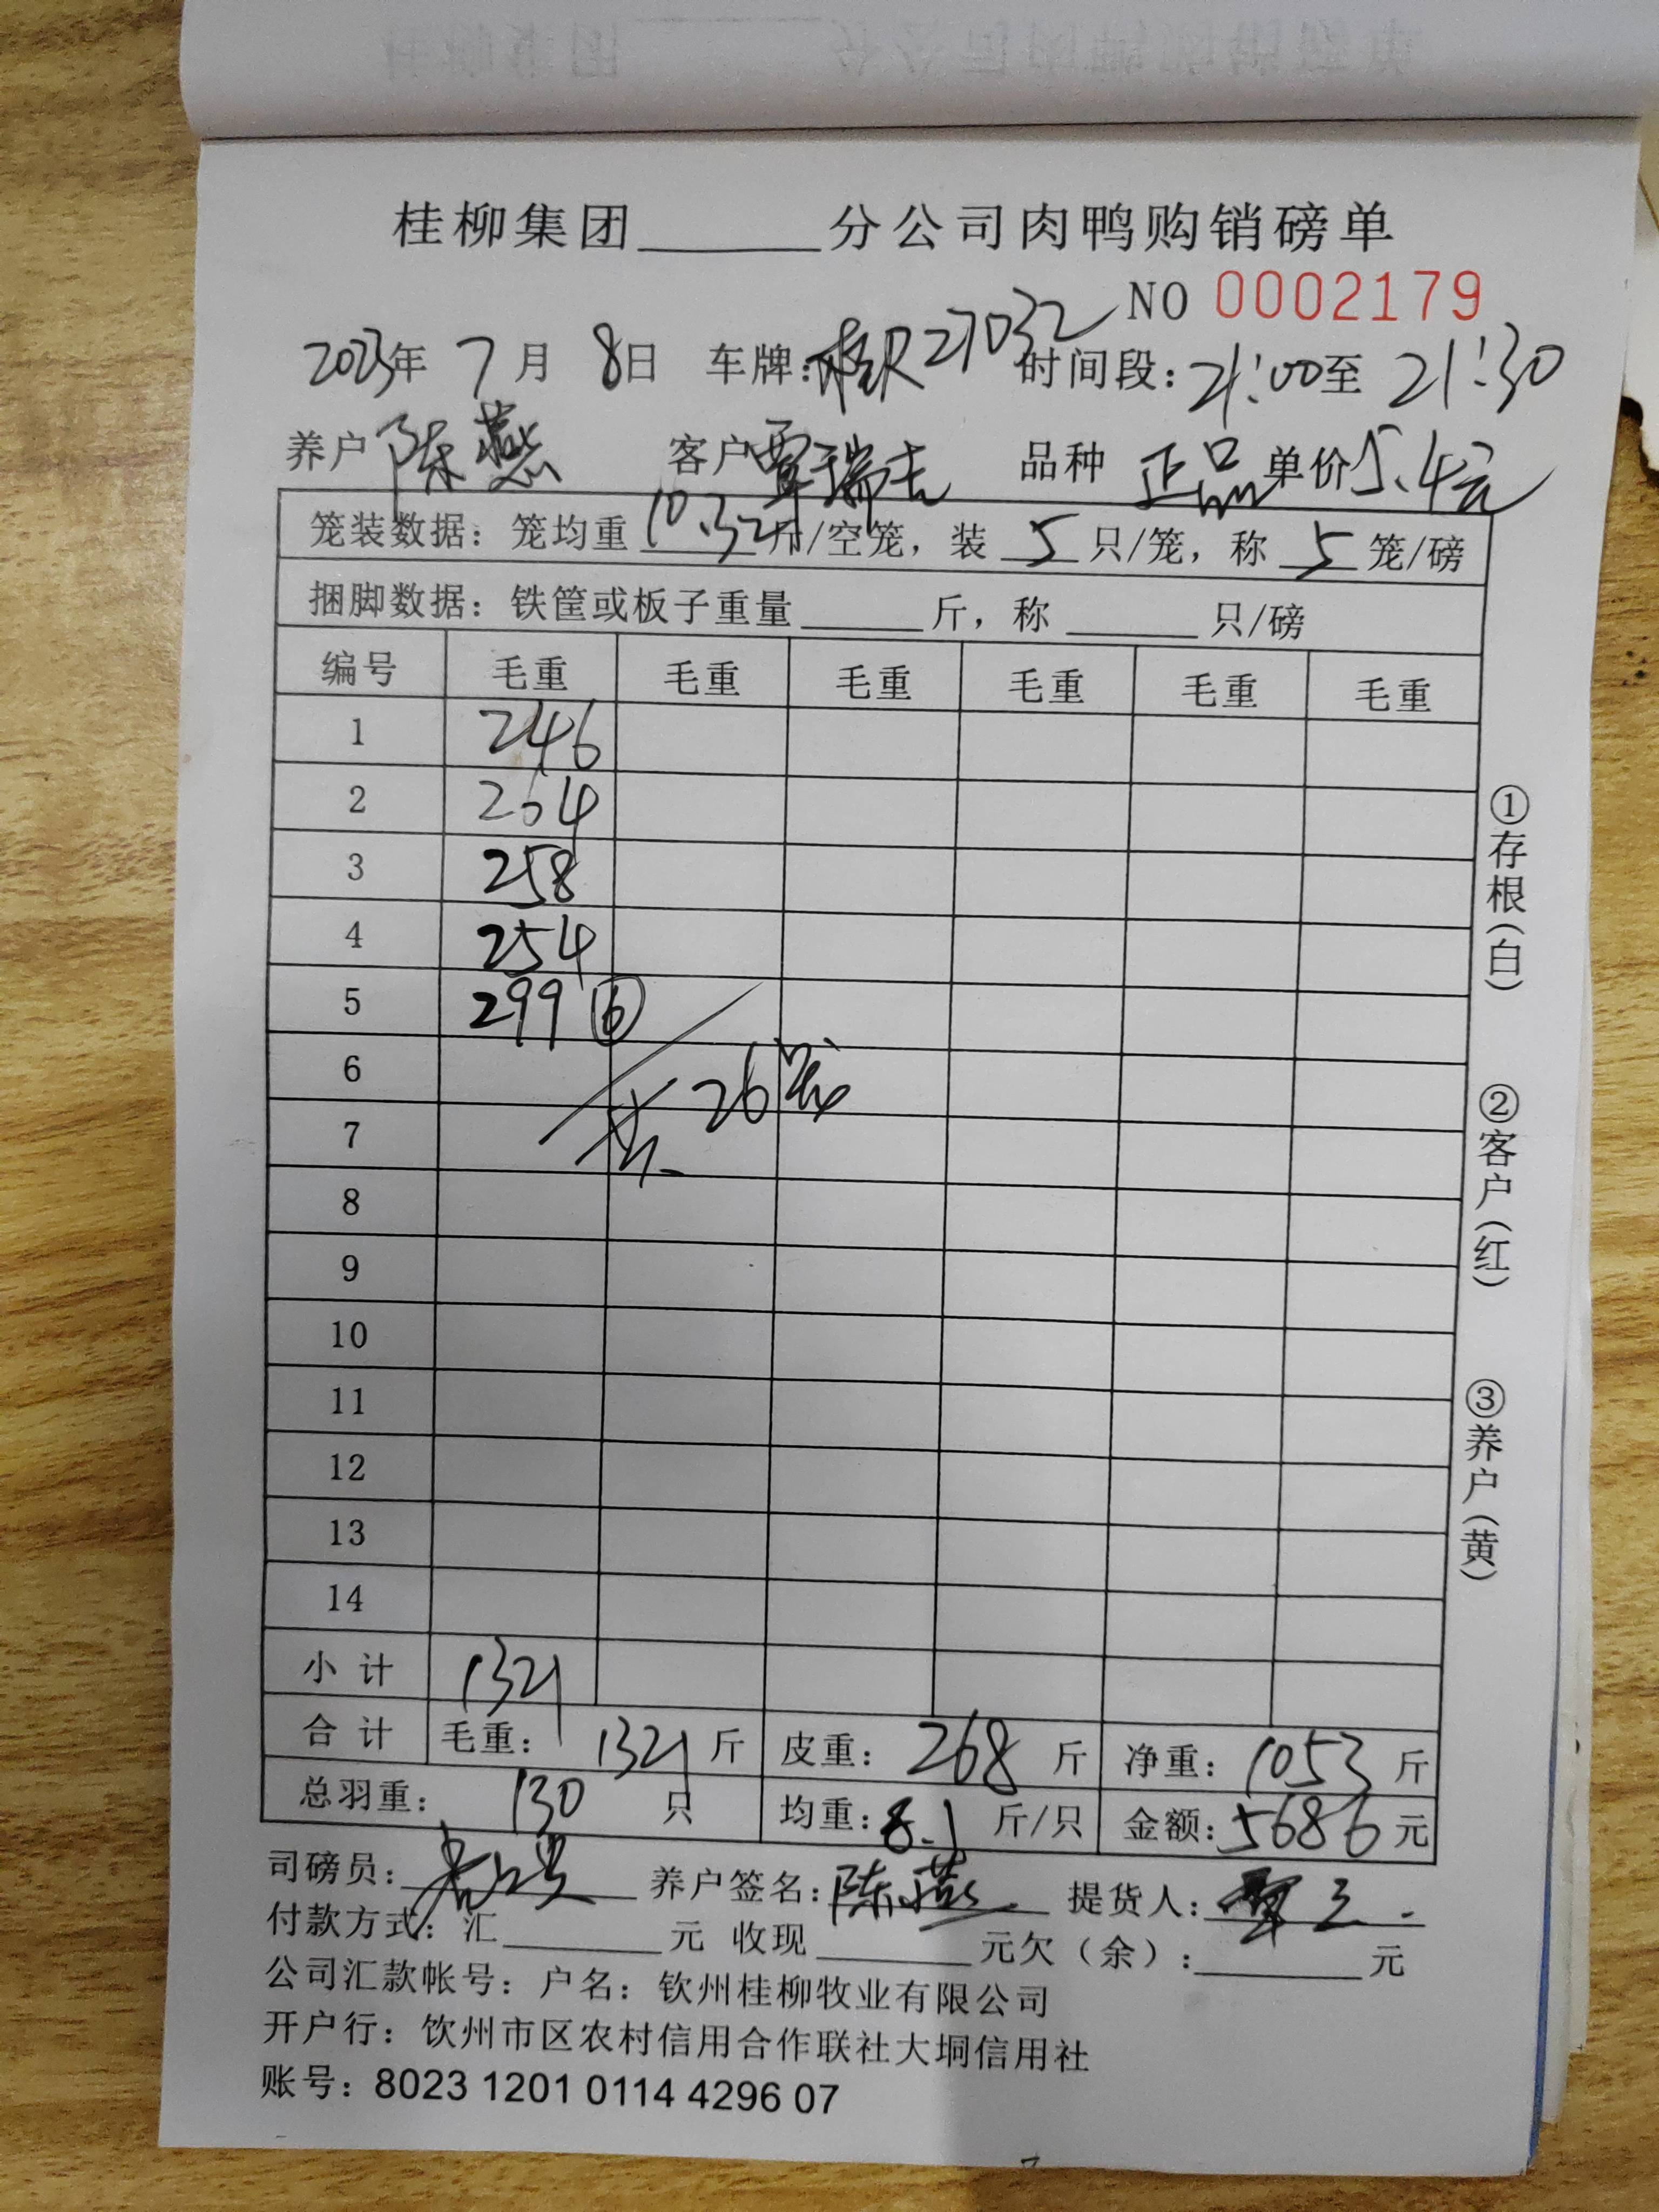 桂柳集团______分公司肉鸭购销磅单
NO 0002179
2023年 7月 8日 车牌:桂R27032 时间段:21:00至 21:30
养户 陈燕 客户 覃瑞吉 品种 正品 单价5.4元
笼装数据：笼均重 10.32 斤/空笼，装 5 只/笼，称 5 笼/磅
捆脚数据：铁筐或板子重量______斤，称______只/磅
编号 毛重 毛重 毛重 毛重 毛重 毛重
1 246
2 264
3 258
4 254
5 299 ⑥
6
共26笼
7
8
9
10
11
12
13
14
小计 1321
合计 毛重：1321斤 皮重：268斤 净重：1053斤
总羽重：130只 均重：8.1斤/只 金额：5686元
司磅员： 养户签名：陈燕 提货人：覃
付款方式：汇______元 收现______元欠（余）：______元
公司汇款帐号：户名：钦州桂柳牧业有限公司
开户行：饮州市区农村信用合作联社大垌信用社
账号：8023 1201 0114 4296 07
①存根（白）
②客户（红）
③养户（黄）